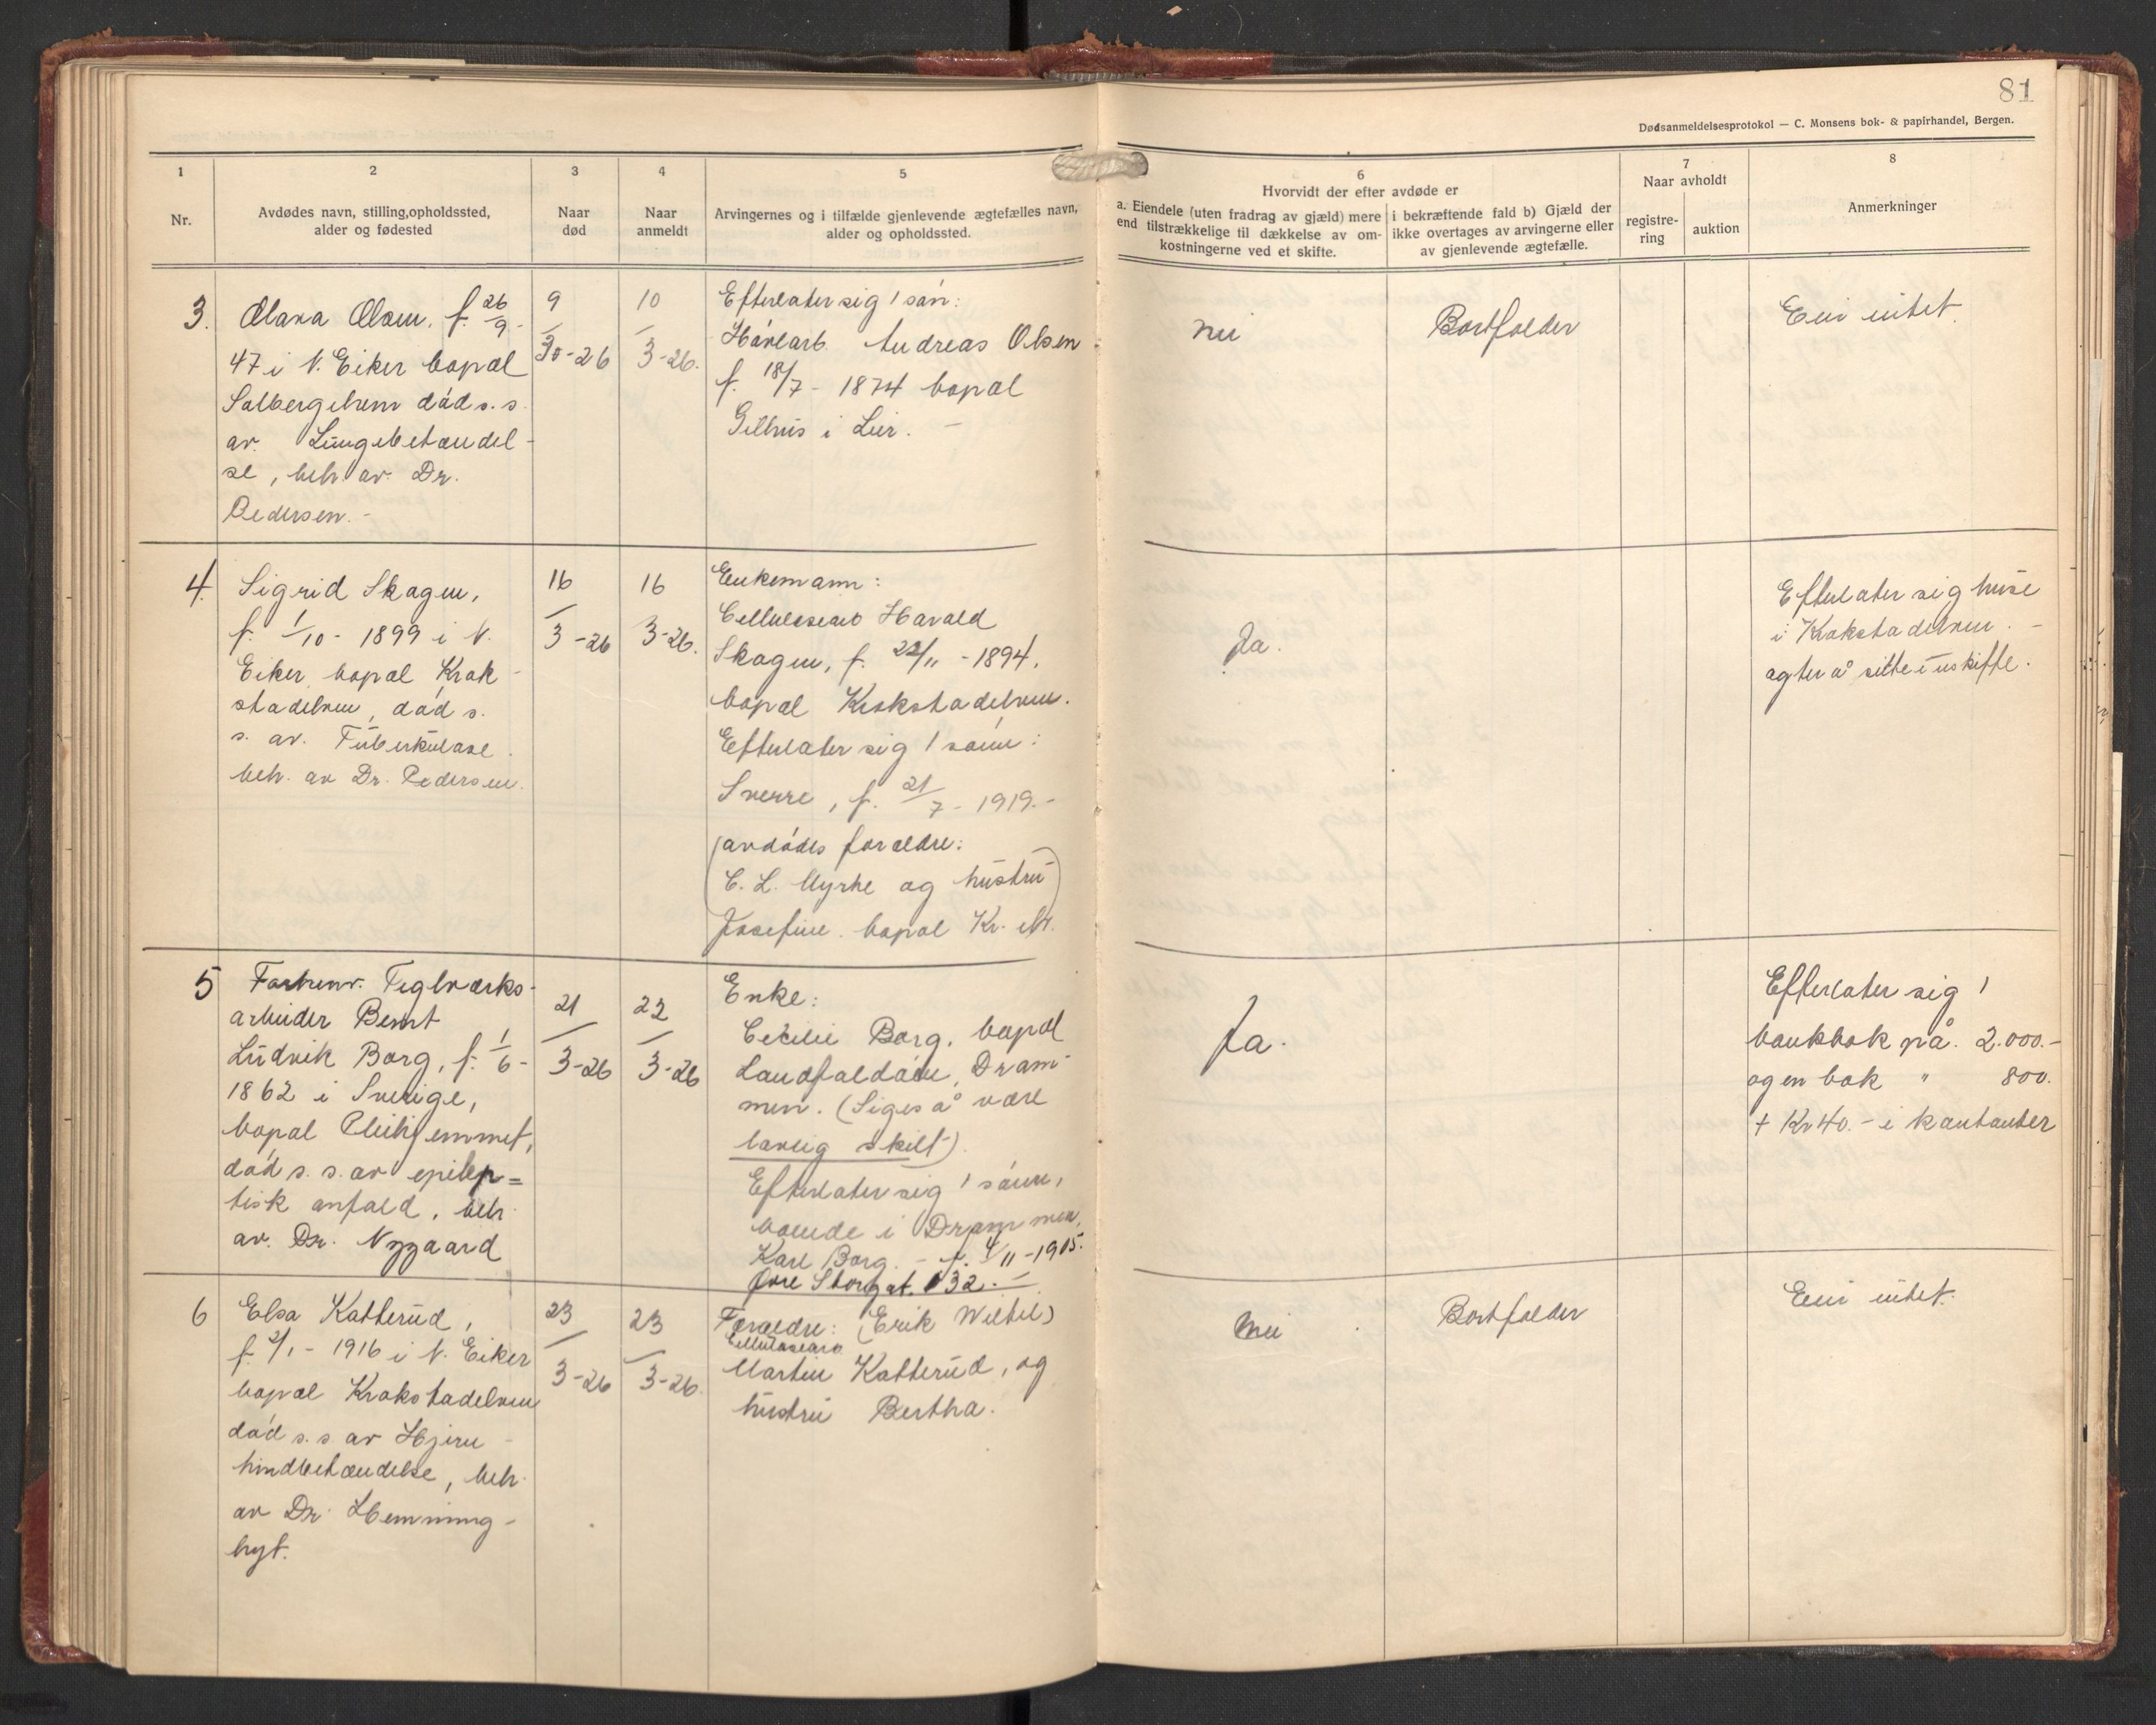 81
Dødsanmeldelsesprotokol — C. Monsens bok- & papirhandel, Bergen.
1
Nr.
2
Avdødes navn, stilling, opholdssted,
alder og fødested
3
Naar
død
4
Naar
anmeldt
5
Arvingernes og i tilfælde gjenlevende ægtefælles navn,
alder og opholdssted.
6
Hvorvidt der efter avdøde er
a. Eiendele (uten fradrag av gjæld) mere
end tilstrækkelige til dækkelse av om-
kostningerne ved et skifte.
i bekræftende fald b) Gjæld der
ikke overtages av arvingerne eller
av gjenlevende ægtefælle.
7
Naar avholdt
registre-
ring
auktion
8
Anmerkninger
3.
Olava Olsen, f. 26/9-
47 i N. Eiker bopæl
Solbergelven død s. s.
av Lungebetændel-
se, beh. av Dr.
Pedersen. -
9/3-26
10/3-26.
Efterlater sig 1 søn:
Høvlarb. Andreas Olsen
f. 18/7 - 1874 bopæl
Gilhus i Lier. -
nei
Bortfalder
Eier intet.
4.
Sigrid Skagen,
f. 1/10 - 1899 i N.
Eiker, bopæl Krok-
stadelven, død s.
s. av Tuberkulose.
beh. av Dr. Pedersen.
16/3-26
16/3-26.
Enkemann:
Cellulosearb Harald
Skagen, f. 22/11 - 1894,
bopæl Krokstadelven.
Efterlater sig 1 sønn:
Sverre, f. 21/7 - 1919. -
(avdødes forældre:
C. L. Myrhe og hustru)
Josefine. bopæl Kr. elv.
Ja.
Efterlater sig huse
i Krokstadelven. -
agter å sitte i uskifte.
5
Forhenv. Teglværks-
arbeider Bernt
Ludvik Borg, f. 1/6-
1862 i Sverige,
bopæl Pleiehjemmet,
død s. s. av epilep=
tisk anfald, beh.
av. Dr. Nygaard
21/3-26
22/3-26
Enke:
Cecilie Borg, bopæl
Landfaldøen, Dram-
men. (Siges å være
lovlig skilt).
Efterlater sig 1 sønn,
boende i Drammen,
Karl Borg. - f. 4/11 - 1905.
Øvre Storgat. 132. -
Ja.
Efterlater sig 1
bankbok på. 2.000.-
og en bok " 800.
+ Kr 40.- i kontanter
6
Elsa Katterud,
f. 2/1 - 1916 i N. Eiker
bopæl Krokstadelven
død s. s. av Hjerne-
hindbetændelse, beh.
av Dr. Hemming-
hyt.
23/3-26
23/3-26.
Forældre: (Erik Wilhel)
Cellulosearb
Martin Katterud, og
hustru Bertha.
Nei
Bortfalder
Eier intet.